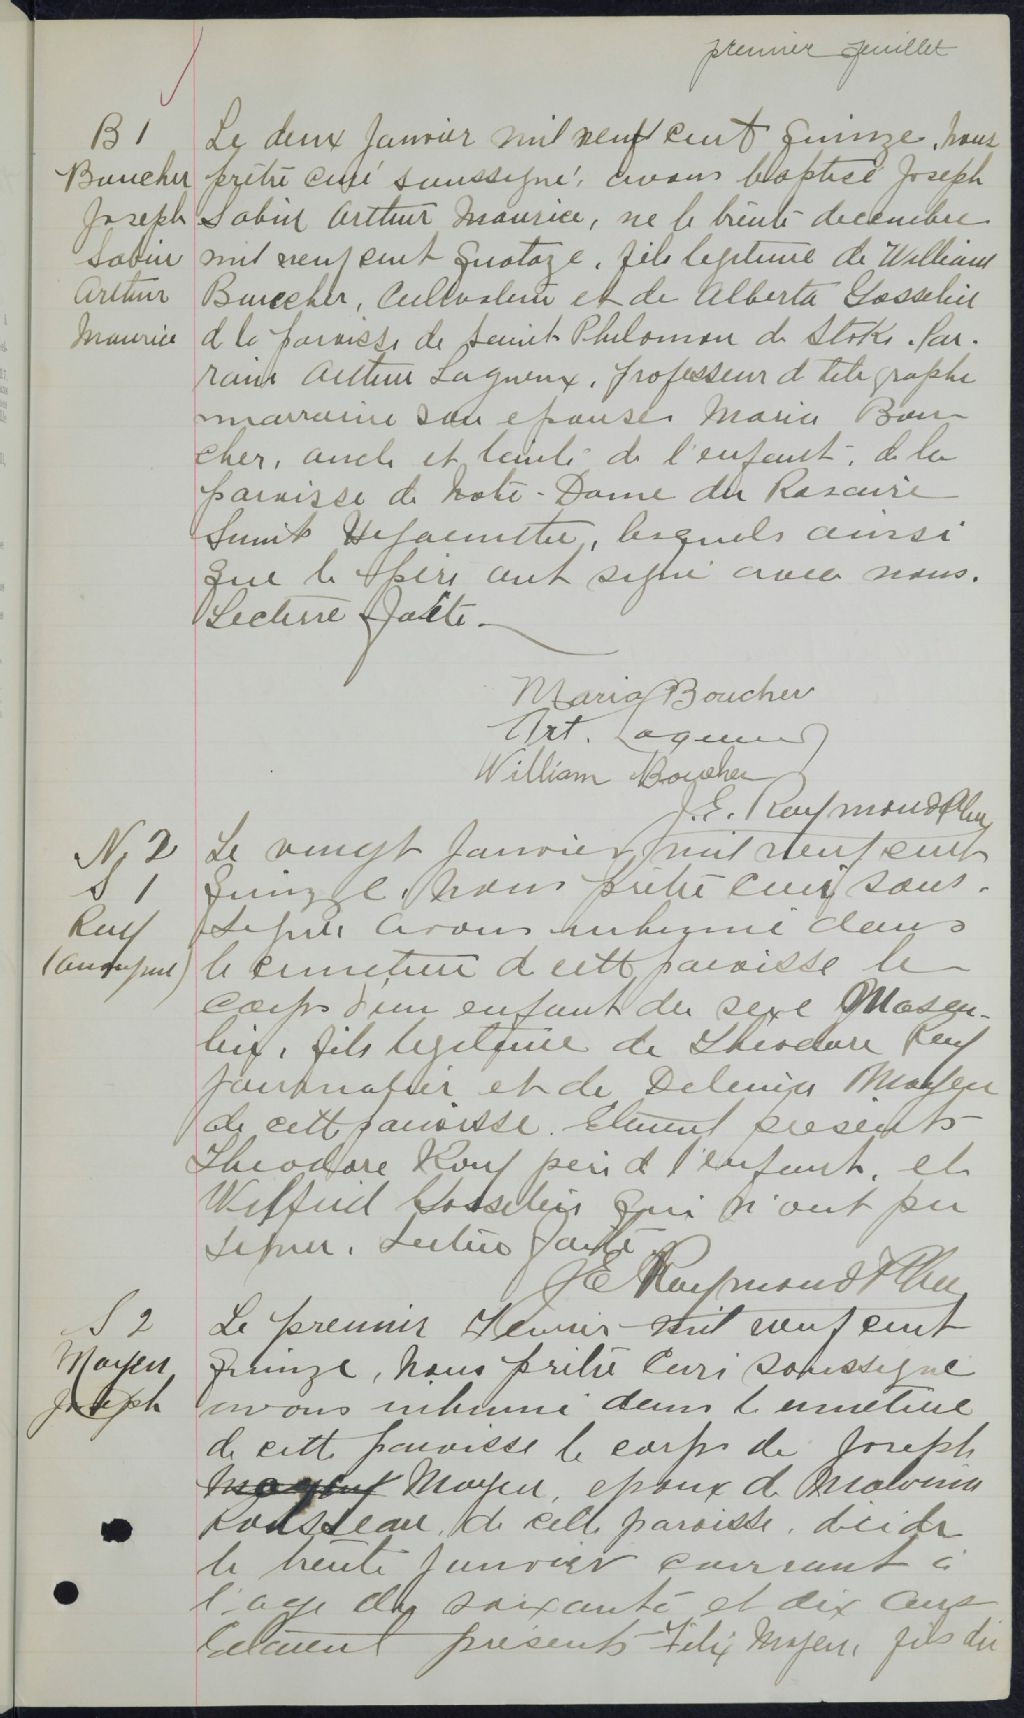 premier feuillet
B 1
Boucher
Joseph
Sabin
Arthur
Maurice
Le deux Janvier mil neuf cent quinze, nous
prêtre curé soussigné, avons baptisé Joseph
Sabin Arthur Maurice, ne le trente decembre
mil neuf cent quatoze, fils legitime de William
Boucher, Cultivateur et de Alberta Gosselin
d la paroisse de Saint Philomon de Stoke. Par-
rain Arthur Lagueux, professeur d télégraphe
marraine son epouse Maria Bou-
cher, oncle et tante de l'enfant, de la
paroisse de Notre-Dame du Rosaire
Saint Hyacinthe, lesquels ainsi
que le père ont signé avec nous.
Lecture faite.
Maria Boucher
Art. Lagueux
William Boucher
J.E. Raymond Ptre
N. 2
S 1
Roy
(anonyme)
Le vingt Janvier mil neuf cent
quinze, nous prêtre curé sous-
signé avons inhumé dans
le cimetière d cette paroisse le
corps d'un enfant du sexe Mascu-
lin, fils legitime de Théodore Roy
journalier et de Delima Moyen
de cette paroisse. Étaient présents
Théodore Roy père d l'enfant, et
Wilfrid Gosselin qui n'ont pu
signer. Lecture faite
J E Raymond Ptre
S 2
Moyen
Joseph
Le premier Fevrier mil neuf cent
quinze, nous prêtre curé soussigné
avons inhumé dans le cimetière
de cette paroisse le corps de Joseph
Moyen, epoux d Malvina
Rousseau, de cette paroisse, décidé
le trente janvier courrant à
l'age de soixante et dix ans
Étaient présents Félix Moyen, fils du